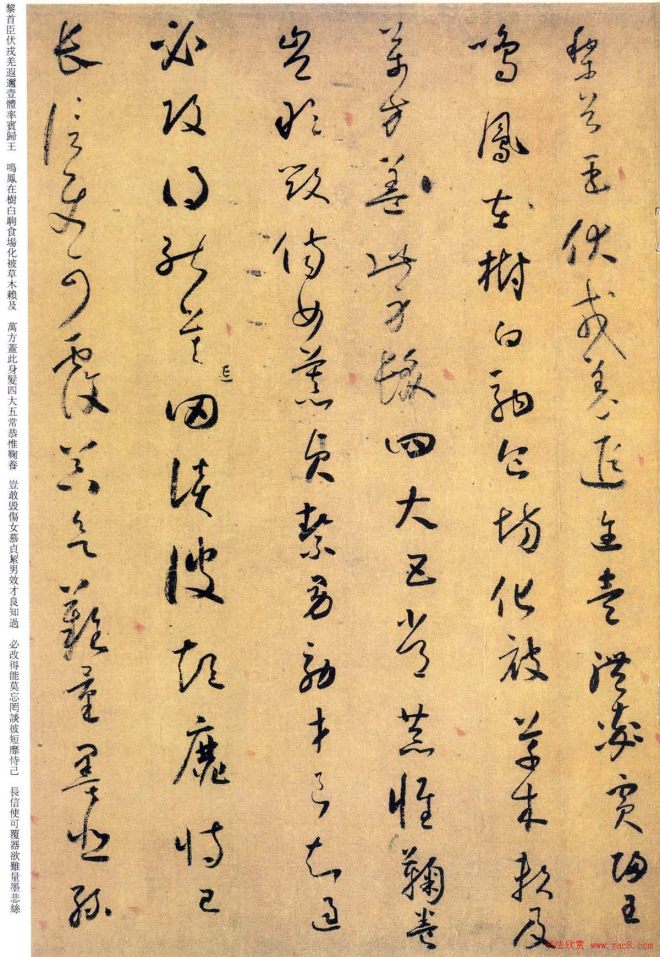 黎首臣伏戎羌遐邇壹體率賓歸王
鳴鳳在樹白駒食場化被草木賴及
萬方蓋此身髮四大五常恭惟鞠養
豈敢毀傷女慕貞絜男效才良知過
必改得能莫忘罔談彼短靡恃己
長信使可覆器欲難量墨悲絲
黎首臣伏戎羌遐邇壹體率賓歸王　鳴鳳在樹白駒食場化被草木賴及　萬方蓋此身髮四大五常恭惟鞠養　豈敢毀傷女慕貞絜男效才良知過　必改得能莫忘罔談彼短靡恃己　長信使可覆器欲難量墨悲絲
书法欣赏 www.yac8.com